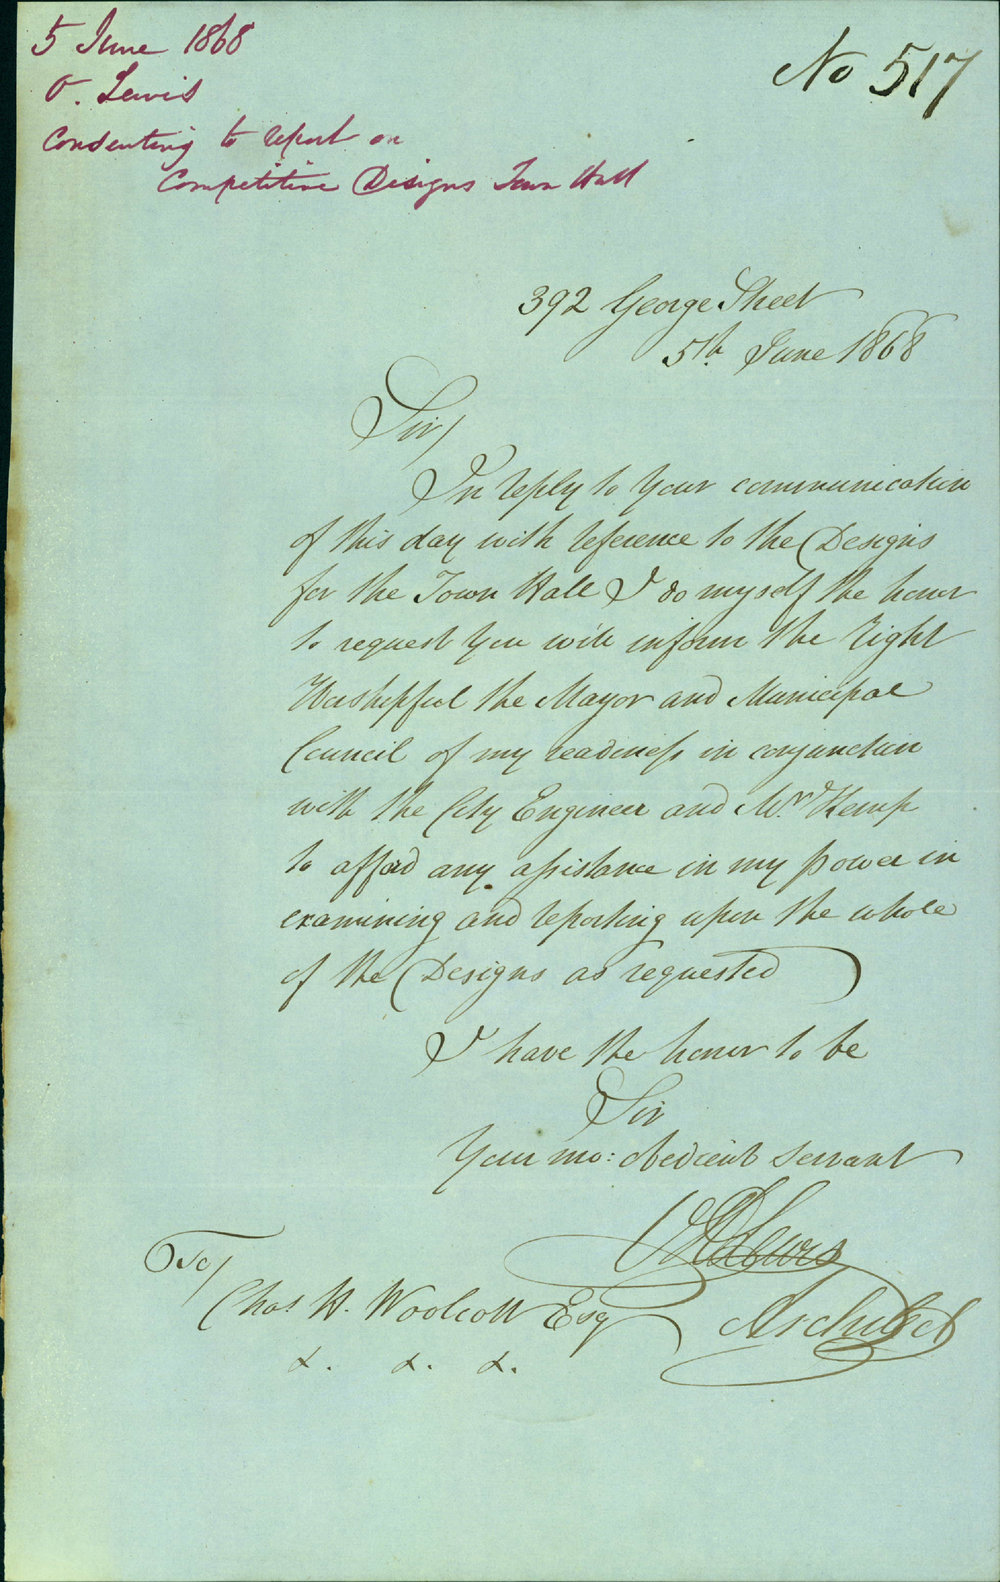 5 June 1868
O. Lewis
Consenting to report on
Competitive Designs Town Hall
No 517
392 George Street
5th June 1868
Sir/
In reply to your communication
of this day with reference to the Designs
for the Town Hall I do myself the honor
to request you will inform the Right
Worshipful the Mayor and Municipal
Council of my readiness in conjunction
with the City Engineer and Mr. Kemp
to afford any assistance in my power in
examining and reporting upon the whole
of the Designs as requested
I have the honor to be
Sir
Your mo: obedient servant
Lewis
Architect
To/
Chas. H. Woolcott Esq
&. &. &.